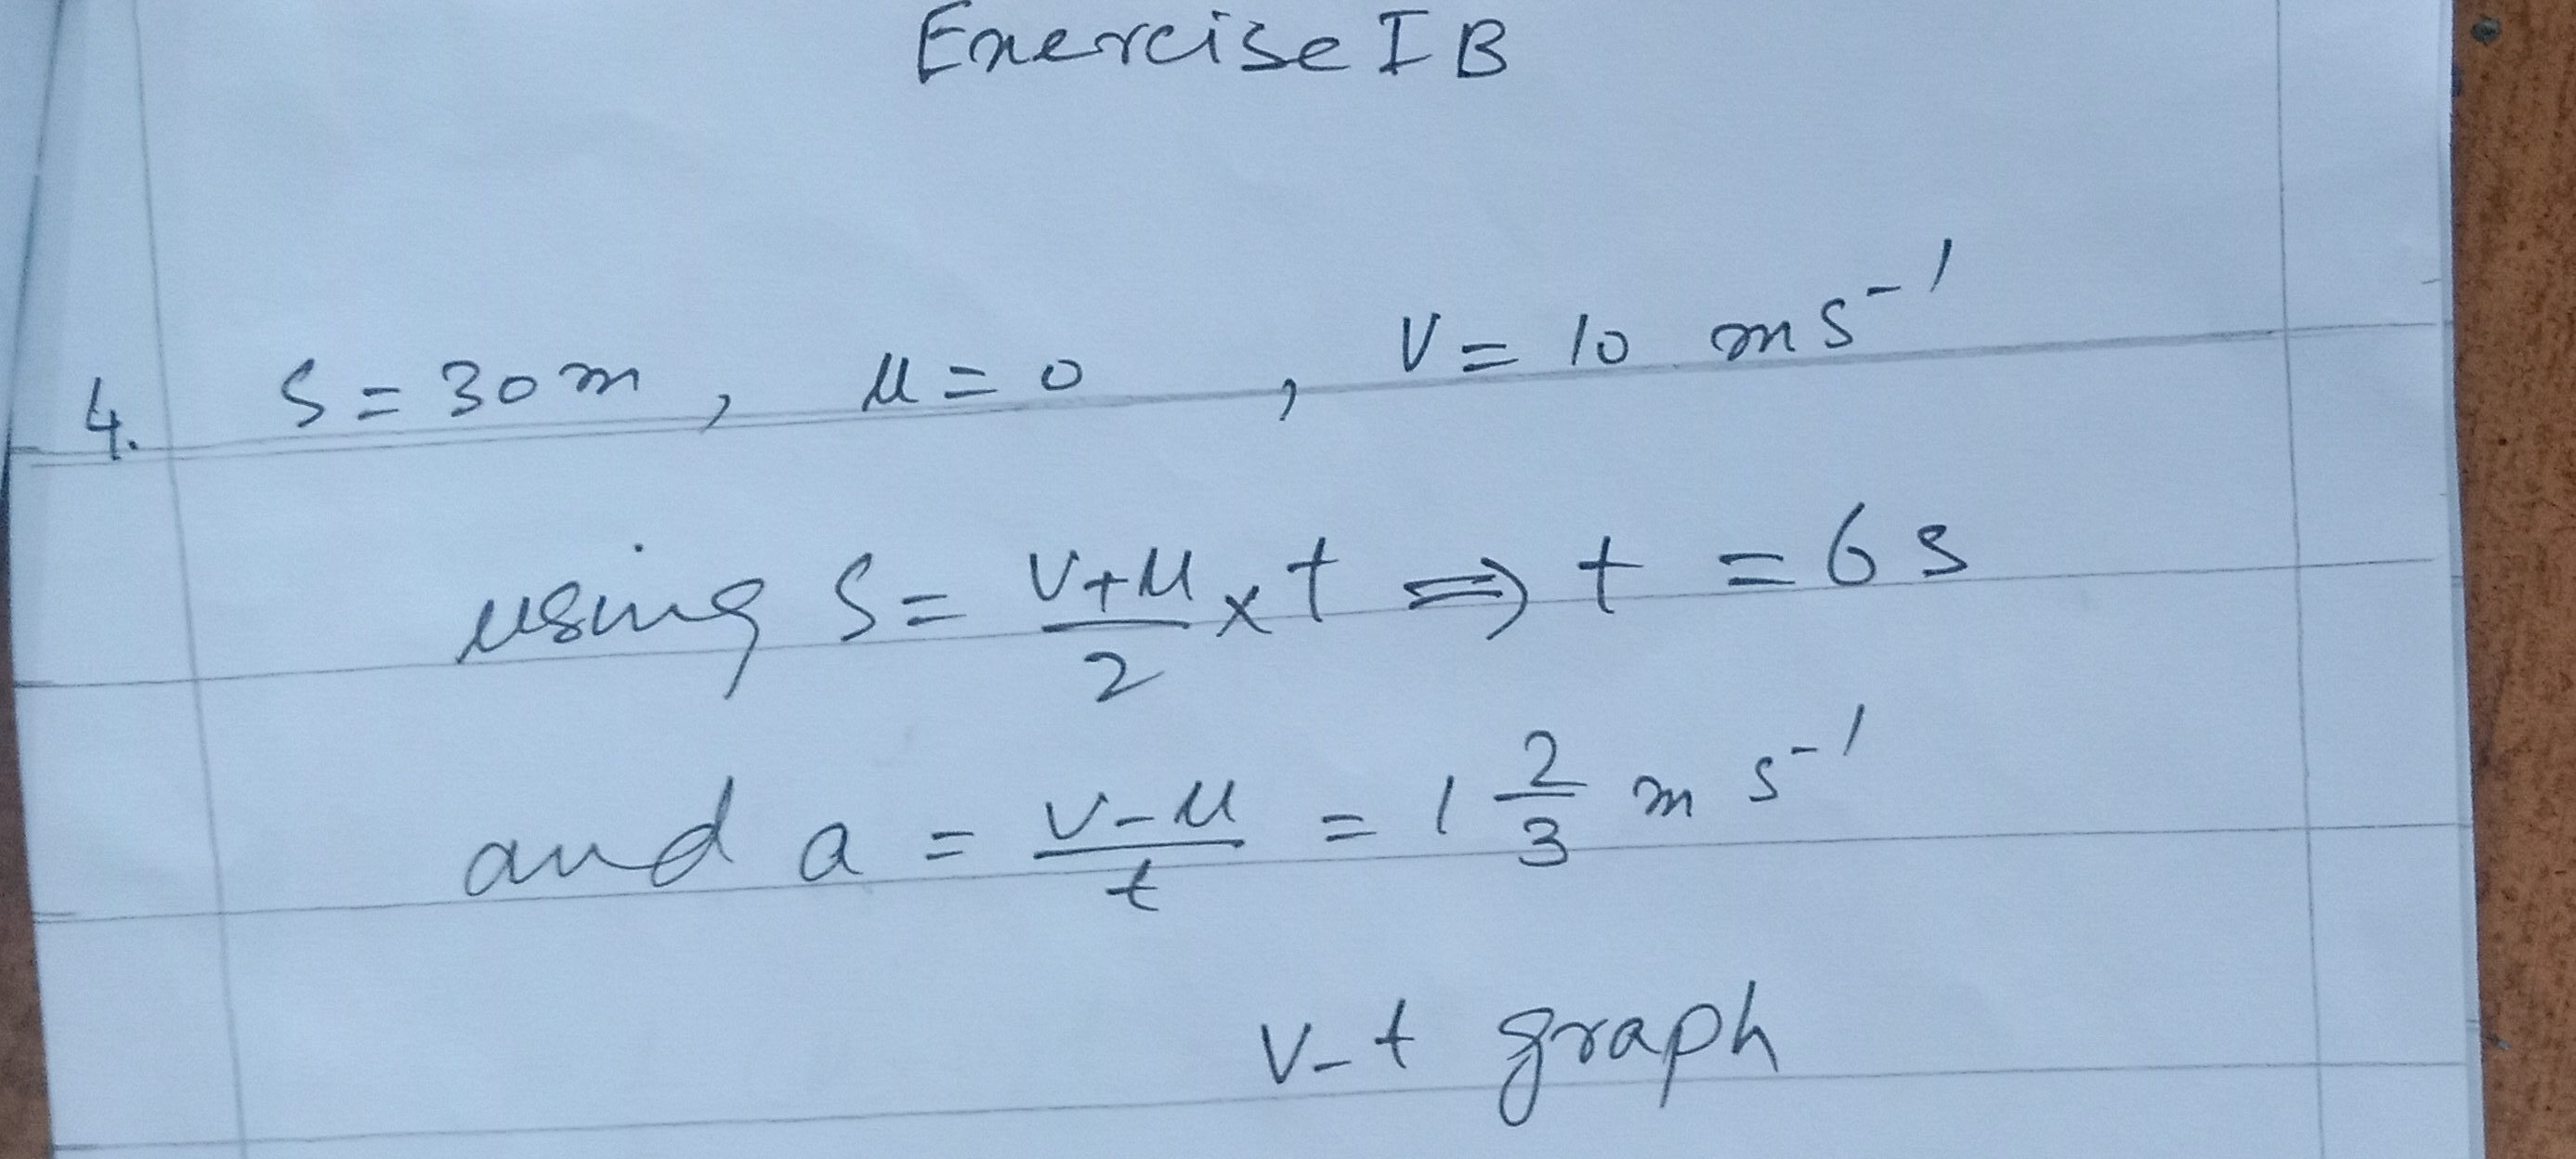 Exercise I B
4. S = 30 m, u = 0, V = 10 m s⁻¹
using S = (V+u)/2 × t ⇒ t = 6 s
and a = (V-u)/t = 1 2/3 m s⁻¹
V-t graph